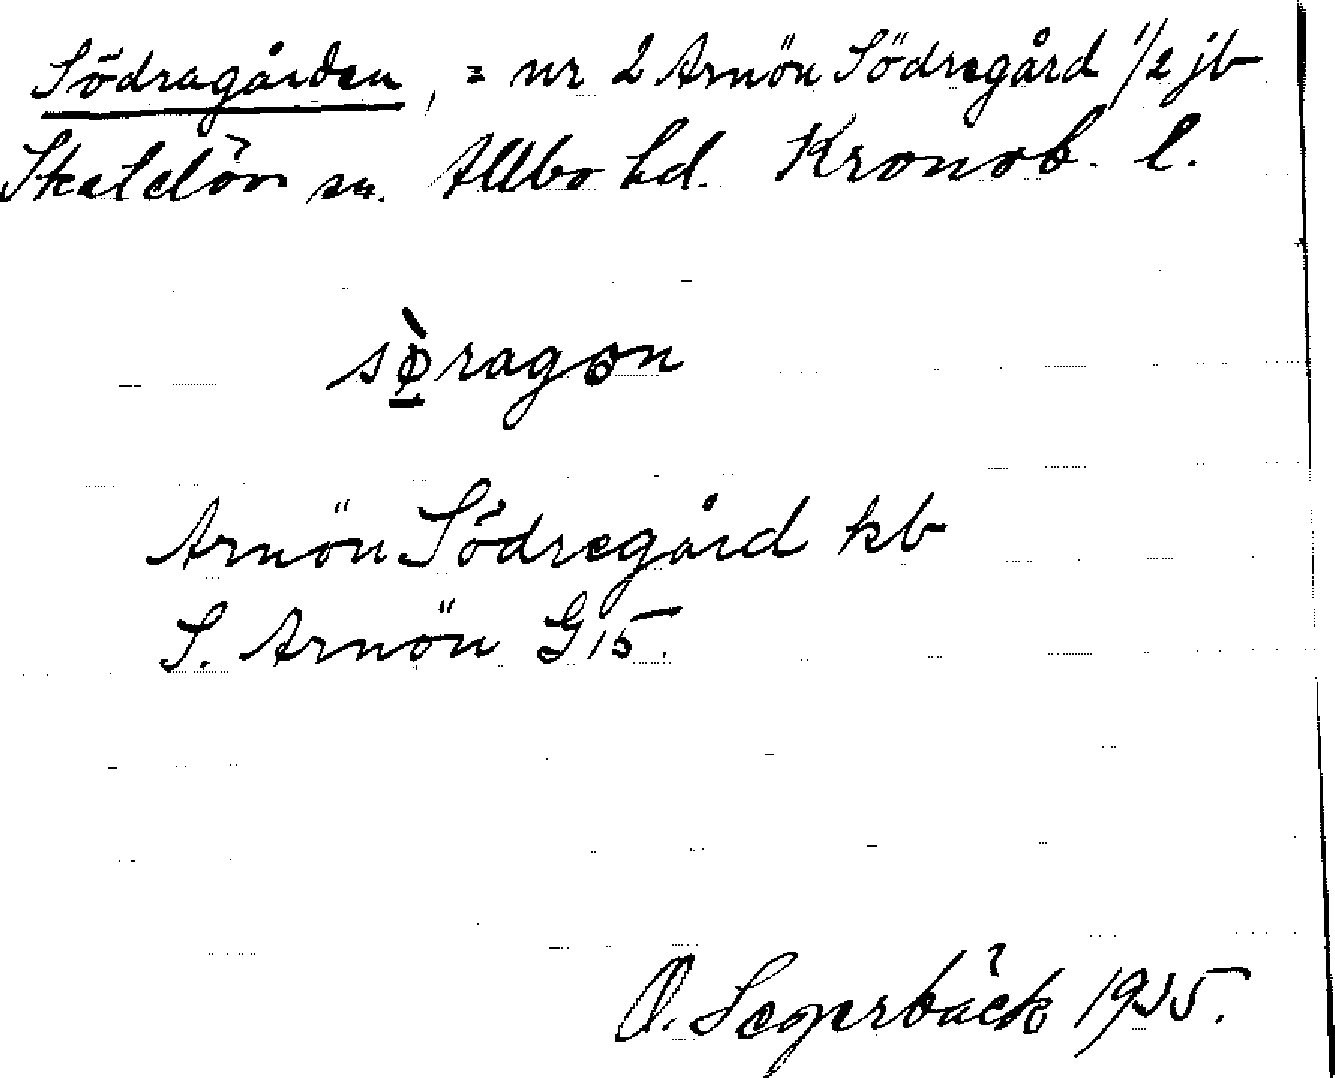 Södragården, = nr 2 Arnön Södregård 1/2 jb
Skatelöv sn. Allbo hd. Kronob. l.
sø̀ragɔn
Arnön Södregård kb
S. Arnön G 15.
O. Segerbäck 1935.